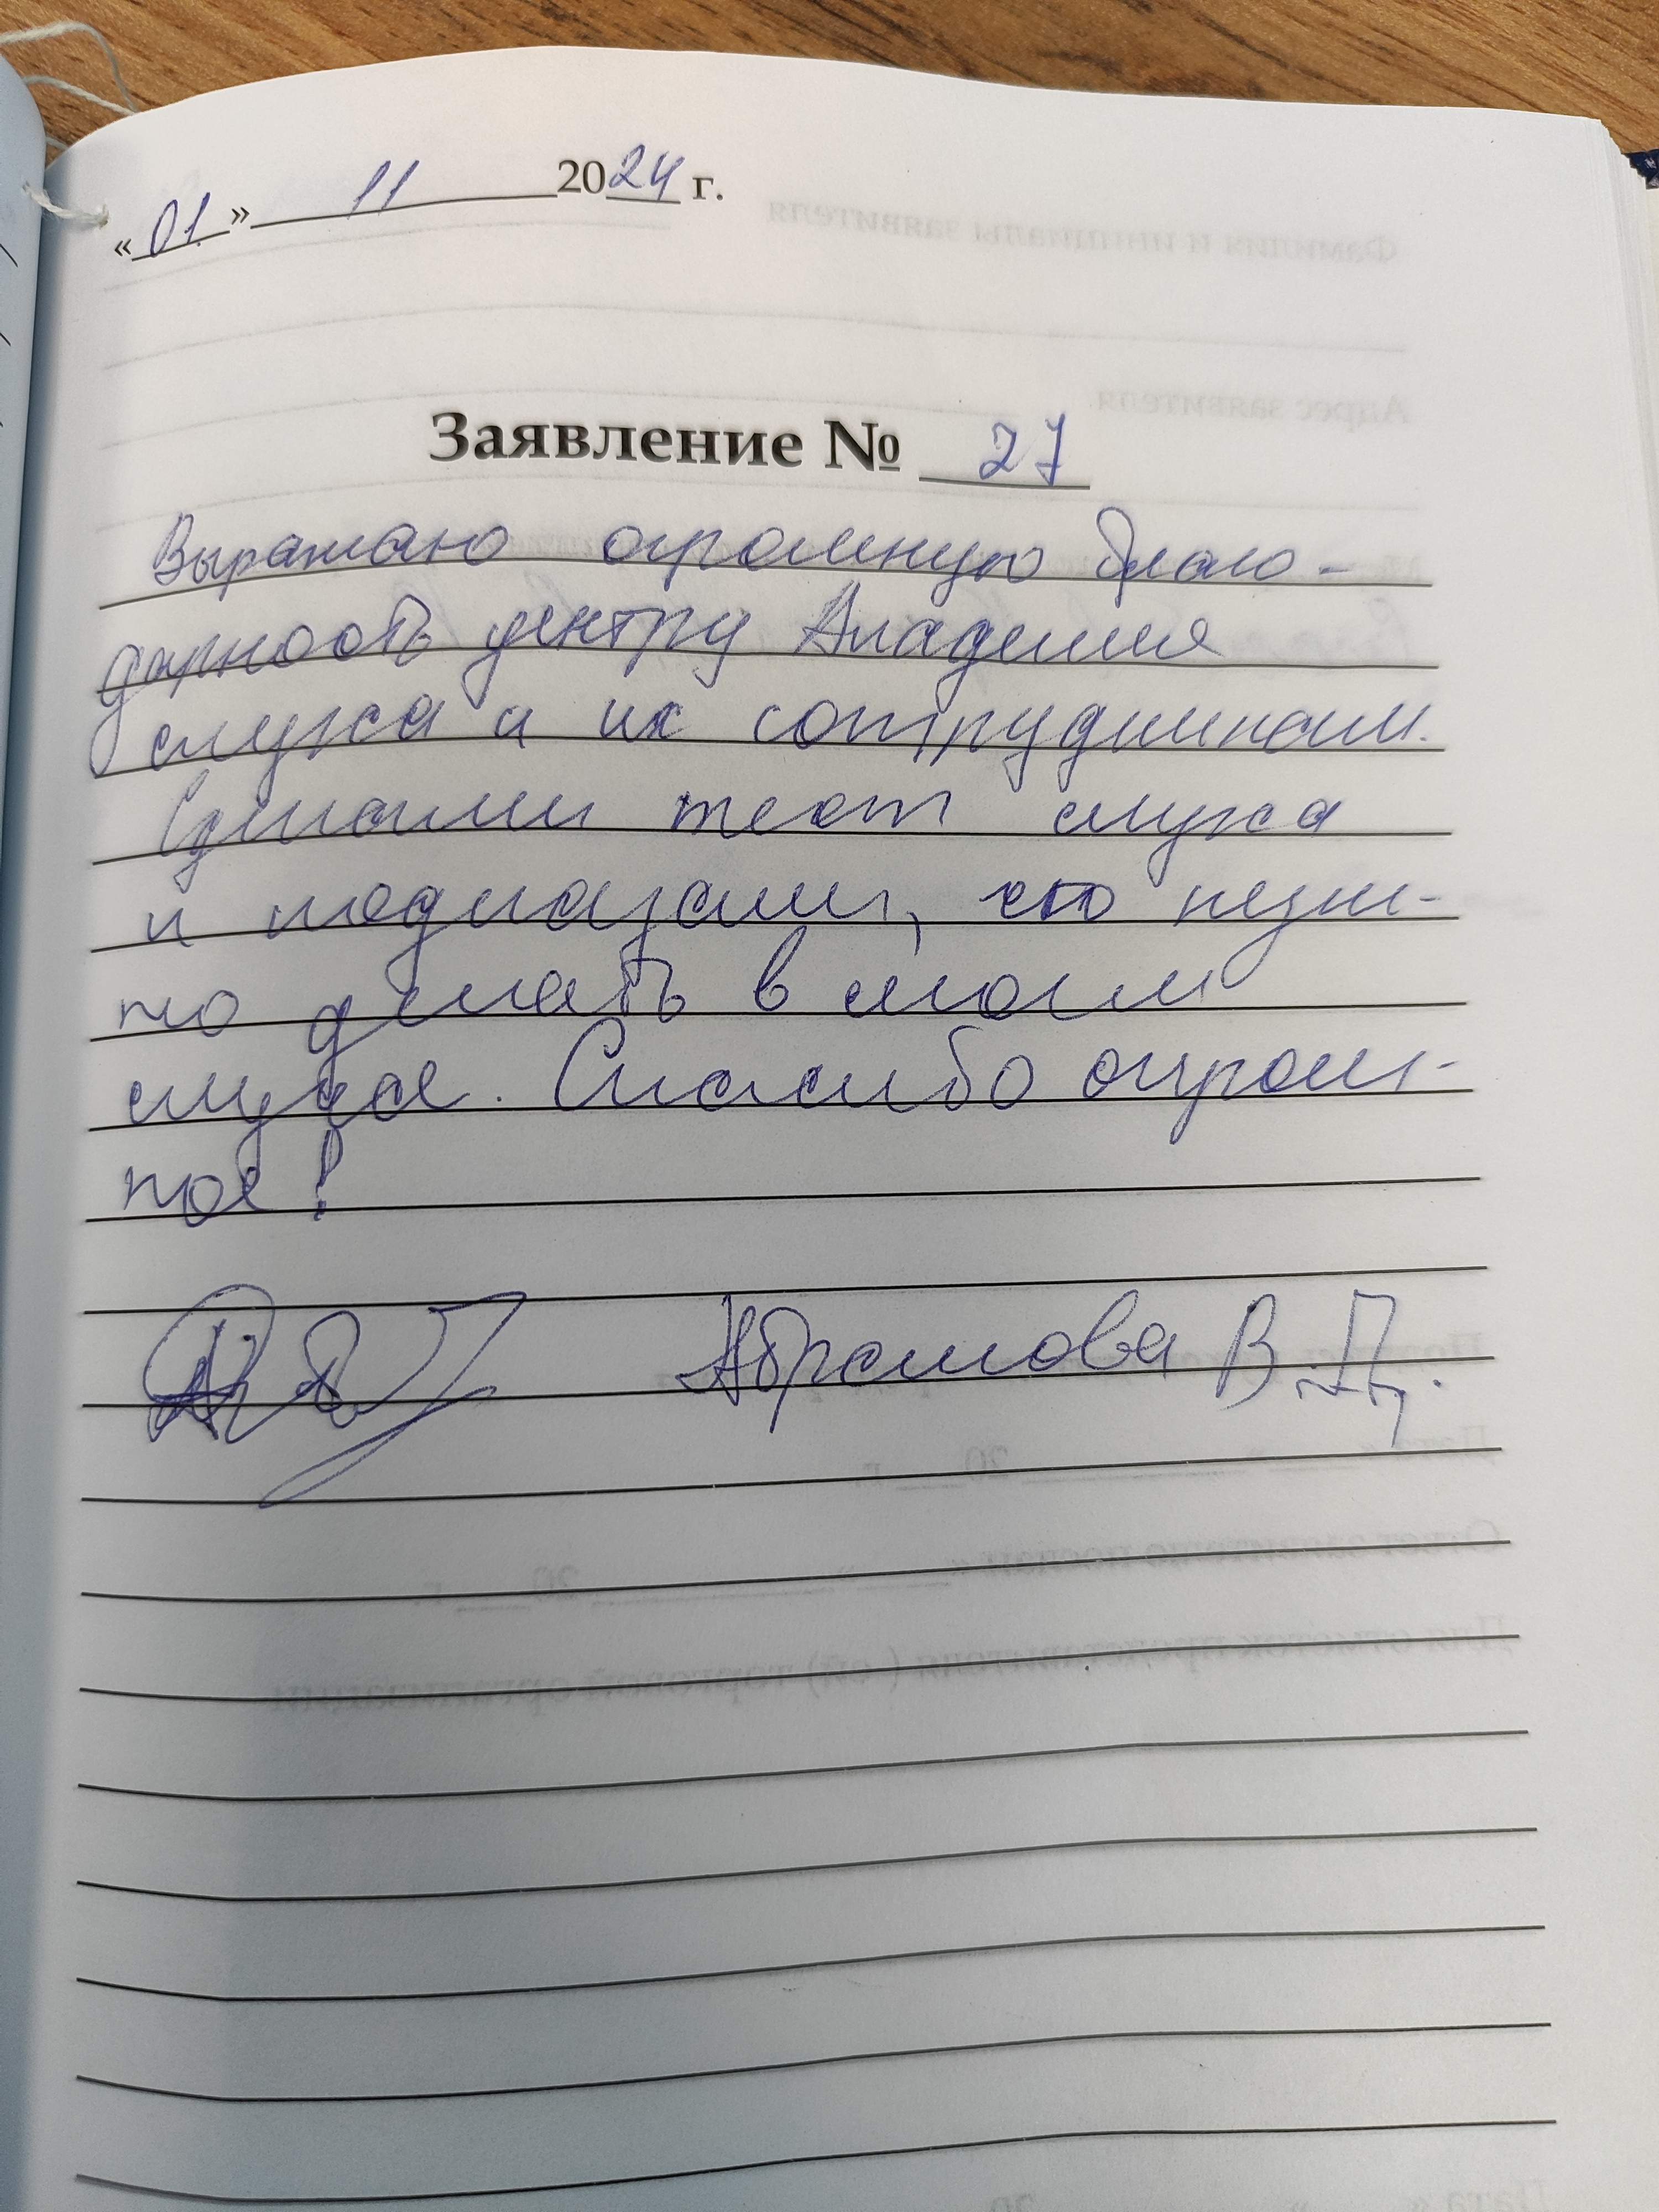 « 01 » 11 2024 г.
Заявление № 27
Выражаю огромную благо-
дарность центру Академия
слуха и их сотрудникам.
Сделали тест слуха
и подсказали, что нуж-
но делать в моем
случае. Спасибо огром-
ное!
Абрамова В.Д.